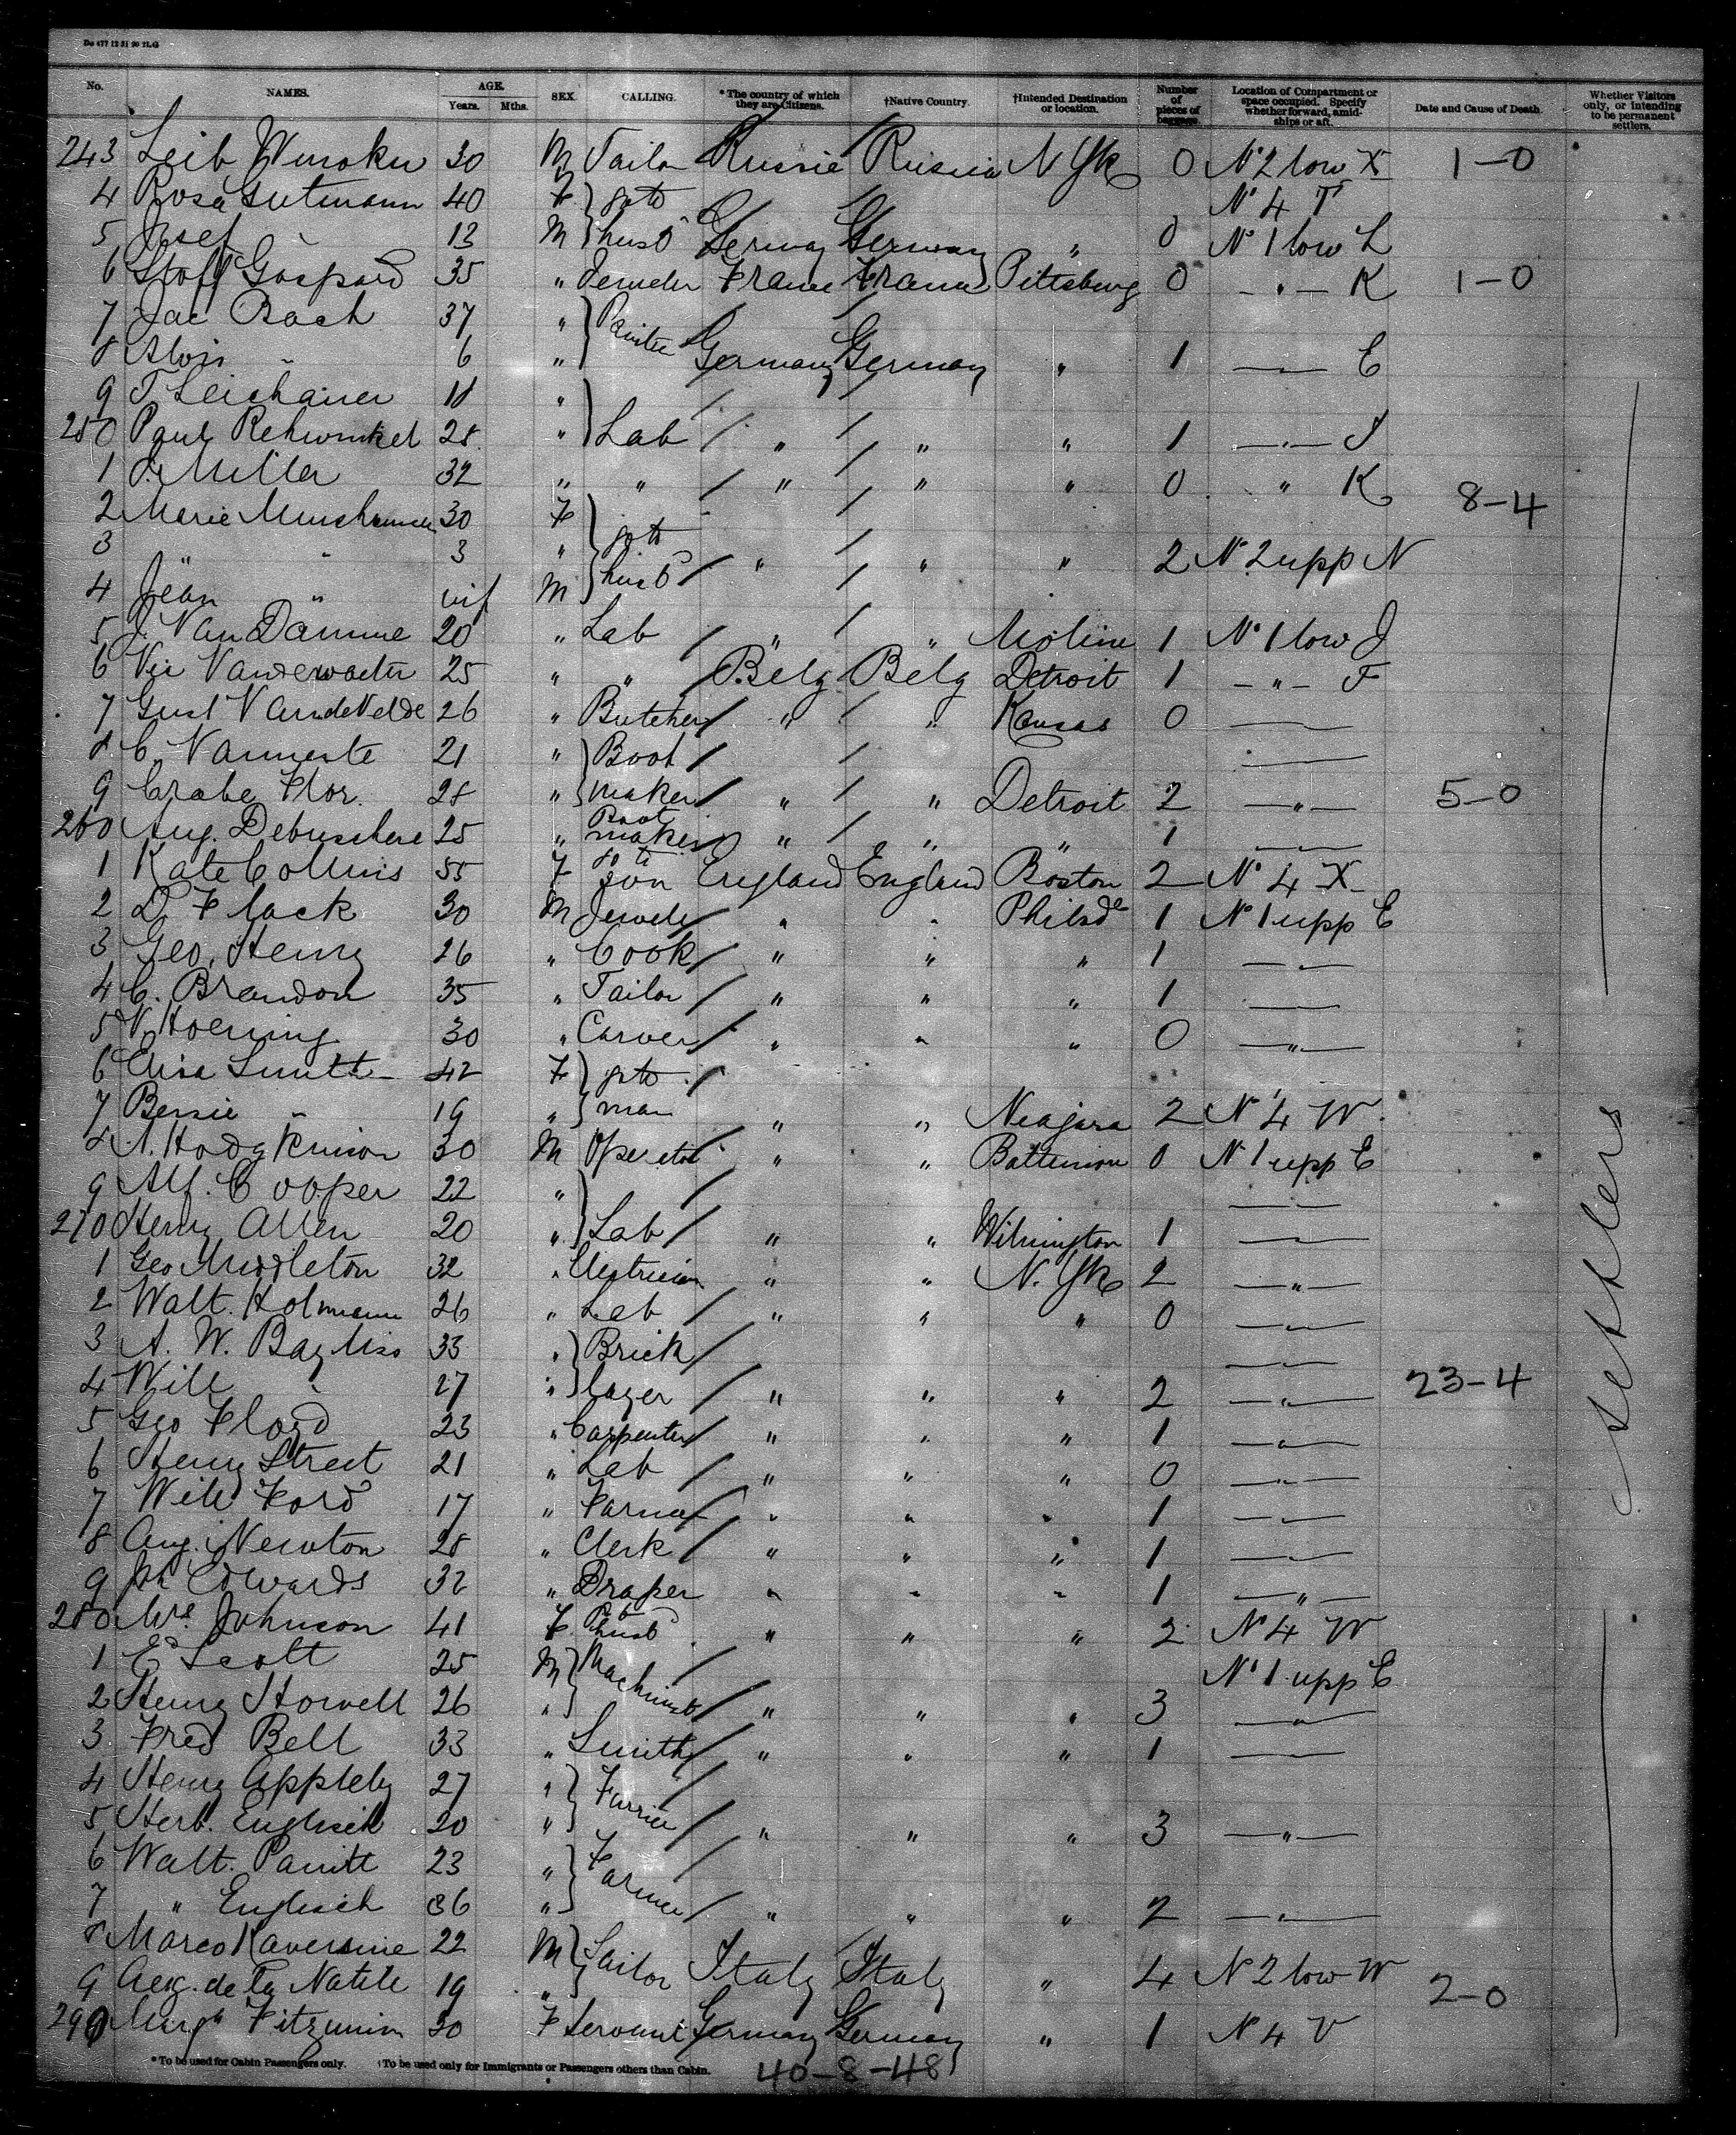 No. NAMES. AGE. Years. Mths. SEX. CALLING. *The country of which they are Citizens. †Native Country. †Intended Destination or location. Number of pieces of baggage. Location of Compartment or space occupied. Specify whether forward, amidships or aft. Date and Cause of Death. Whether Visitors only, or intending to be permanent settlers.
243 Leib 30 M Tailor Russia Russia N Yk 0 No 2 low X 1-0
4 Rosa Gutmann 40 F } gto No 4 T
5 Josef " 13 M } husb Germany Germany " 0 No 1 low L
6 Stoff Gaspard 35 " Jeweler France France Pittsburg 0 -"- K 1-0
7 Jac Bach 37 " } Painter
8 Alois " 6 " } Germany Germany " 1 -"- E
9 T Leishauer 18 " }
250 Paul Rehwinkel 28 " } Lab " " " 1 -"- J
1 J. Miller 32 " " " " " 0 " K 8-4
2 Marie 30 F } gto
3 " " 3 " } husb " " " 2 No 2 upp N
4 Jean " inf M }
5 J. Van Damme 20 " Lab " " Moline 1 No 1 low J
6 Vic 25 " " Belg Belg Detroit 1 -"- F
7 Gust VandeVelde 26 " Butcher " " Kansas 0 ——
8 C Vanneste 21 " } Boot ——
9 Crabe Flor. 28 " } maker " " Detroit 2 -"- 5-0
260 Aug. Debuschere 25 " Boot maker " " " 1 -"-
1 Kate Collins 55 F go to son England England Boston 2 No 4 X
2 D. Flack 30 M Jeweler " " Philade 1 No 1 upp E
3 Geo. Henry 26 " Cook " " " 1 -"-
4 C. Brandon 35 " Tailor " " " 1 -"-
5 V. Hoening 30 " Carver " " " 0 -"-
6 Elisa Smith 42 F } gto
7 Bessie " 19 " } man " " Niagara 2 No 4 W
8 A. Hodgkinson 30 M Operator " " Baltimore 0 No 1 upp E
9 Alf. Cooper 22 " } -"-
270 Henry Allen 20 " } Lab " " Wilmington 1 -"-
1 Geo Middleton 32 " Electrician " " N. Yk 2 -"-
2 Walt. Holmann 26 " Lab " " " 0 -"-
3 A. W. Bayliss 33 " } Brick -"-
4 Will " 27 " } layer " " " 2 -"- 23-4
5 Geo Floyd 23 " Carpenter " " " 1 -"-
6 Henry Street 21 " Lab " " " 0 -"-
7 Will Ford 17 " Farmer " " " 1 -"-
8 Aug. Newton 28 " Clerk " " " 1 -"-
9 Jn Edwards 32 " Draper " " " 1 -"-
280 Mrs Johnson 41 F gto husb " " " 2 No 4 W
1 E Scott 25 M } Machinist No 1 upp E
2 Henry Howell 26 " } " " " 3 -"-
3 Fred Bell 33 " Smith " " " 1 -"-
4 Henry Appleby 27 " } Furrier
5 Herb. Englisch 20 " } " " " 3 -"-
6 Walt. 23 " } Farmer
7 " Englisch 36 " } " " " 2 -"-
8 Marco Kaversine 22 M } Sailor Italy Italy " 4 No 2 low W
9 de la Natale 19 " } 2-0
290 Margh 30 F Servant Germany Germany " 1 No 4 V
settlers
*To be used for Cabin Passengers only. †To be used only for Immigrants or Passengers others than Cabin.
40-8-48